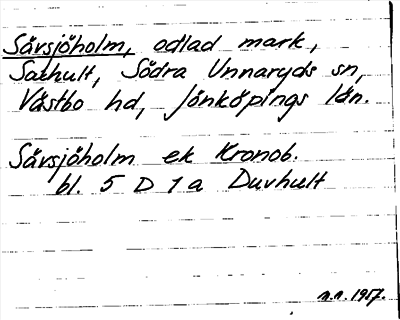 Sävsjöholm, odlad mark,
Sathult, Södra Unnaryds sn,
Västbo hd, Jönköpings län.
Sävsjöholm ek Kronob.
bl. 5 D 1 a Duvhult
n.n. 1957.